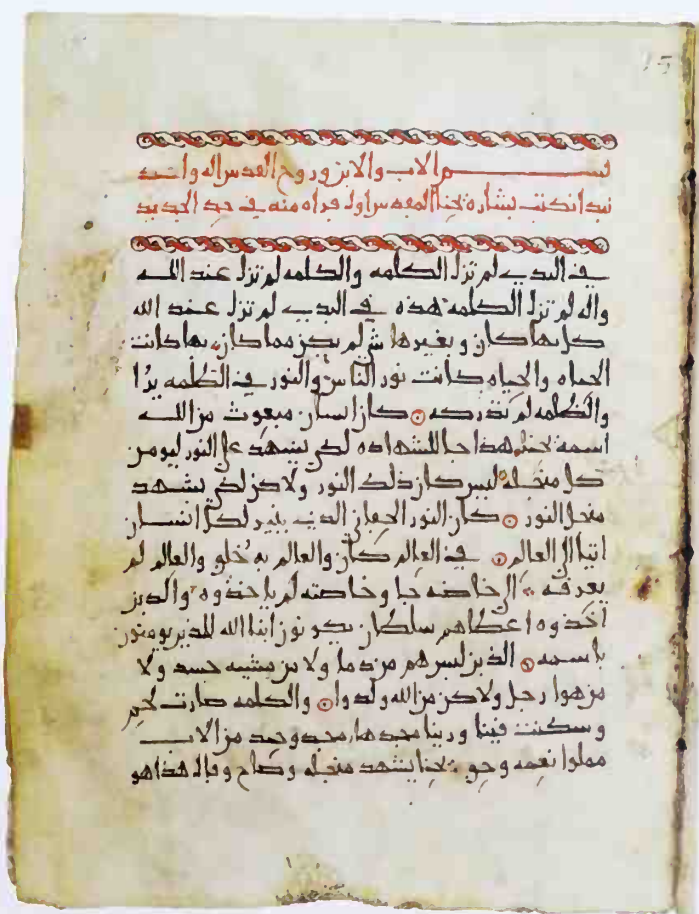 15
بسم الاب والابن وروح القدس اله واحد
نبدا نكتب بشارة يحنا المقدس اول قراه منه في حد الجديد
في البدي لم تزل الكلمه والكلمه لم تزل عند الله
واله لم تزل الكلمه هذه في البدي لم تزل عند الله
كل بها كان وبغيرها شي لم يكن مما كان بها كانت
الحياه والحياه كانت نور الناس والنور في الظلمه يرا
والظلمه لم تدركه كان انسان مبعوث من الله
اسمه يحنا هذا جا للشهاده لكي يشهد على النور ليومن
كل منجله ليس كان ذلك النور ولاكن لكي يشهد
منجل النور كان النور الحقاني الذي ينير لكل انسان
اتيا الى العالم في العالم كان والعالم به خلق والعالم لم
يعرفه الى خاصته جا وخاصته لم ياخذوه والذين
اخذوه اعطاهم سلطان يكونون ابنا الله للذين يومنون
باسمه الذين ليس هم من دما ولا من مشيه جسد ولا
من هوا رجل ولاكن من الله ولدوا والكلمه صارت لحم
وسكنت فينا ورينا مجدها مجد وحيد من الاب
مملوا نعمه وحق يحنا يشهد منجله وصاح وقال هذا هو